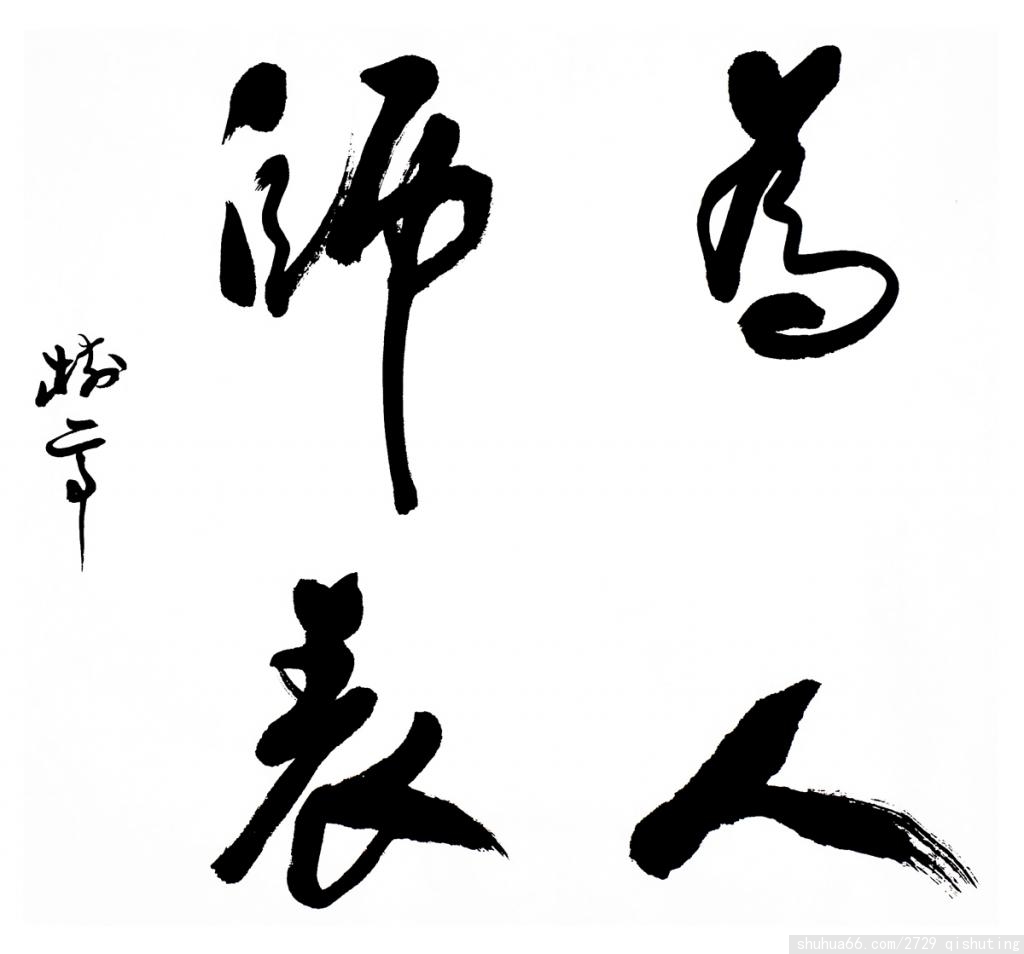 為人
師表
樹亭
shuhua66.com/2729 qishuting